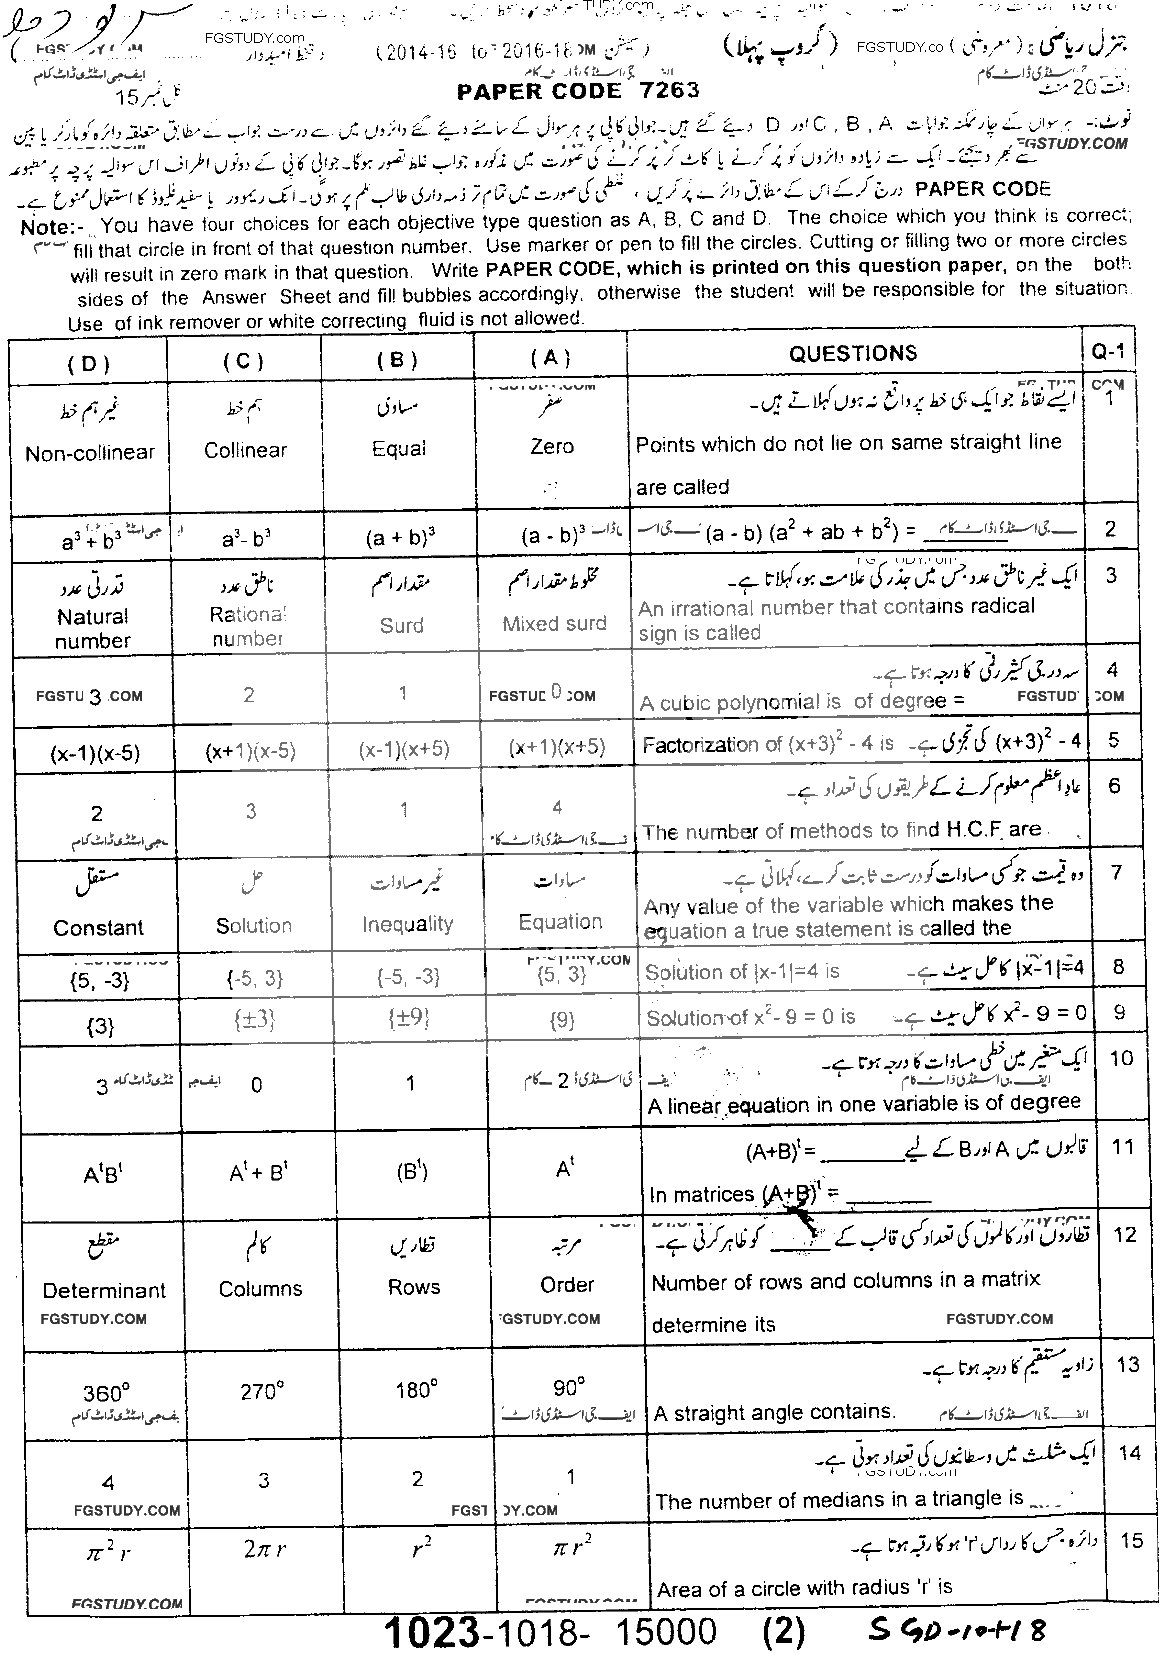 FGSTUDY.com
FGSTUDY.COM
جنرل ریاضی : (معروضی) (گروپ پہلا) (سیشن 2016-18 to 2014-16)
وقت 20 منٹ
PAPER CODE 7263
کل نمبر 15
نوٹ:- ہر سوال کے چار ممکنہ جوابات A ، B ، C اور D دیئے گئے ہیں۔ جوابی کاپی پر ہر سوال کے سامنے دیئے گئے دائروں میں سے درست جواب کے مطابق متعلقہ دائرہ کو مارکر یا پین
سے بھر دیجئے۔ ایک سے زیادہ دائروں کو پُر کرنے یا کاٹ کر پُر کرنے کی صورت میں مذکورہ جواب غلط تصور ہوگا۔ جوابی کاپی کے دونوں اطراف اس سوالیہ پرچہ پر مطبوعہ
PAPER CODE درج کرکے اس کے مطابق دائرے پُر کریں ، غلطی کی صورت میں تمام تر ذمہ داری طالب علم پر ہوگی۔ انک ریموور یا سفید فلیوڈ کا استعمال ممنوع ہے۔
Note:- You have four choices for each objective type question as A, B, C and D. The choice which you think is correct;
fill that circle in front of that question number. Use marker or pen to fill the circles. Cutting or filling two or more circles
will result in zero mark in that question. Write PAPER CODE, which is printed on this question paper, on the both
sides of the Answer Sheet and fill bubbles accordingly, otherwise the student will be responsible for the situation.
Use of ink remover or white correcting fluid is not allowed.
(D) (C) (B) (A) QUESTIONS Q-1
غیر ہم خط ہم خط مساوی صفر ایسے نقاط جو ایک ہی خط پر واقع نہ ہوں کہلاتے ہیں۔ 1
Non-collinear Collinear Equal Zero Points which do not lie on same straight line
are called
a³ + b³ a³- b³ (a + b)³ (a - b)³ (a - b) (a² + ab + b²) = ______ 2
قدرتی عدد ناطق عدد مقدار اصم مخلوط مقدار اصم ایک غیر ناطق عدد جس میں جذر کی علامت ہو، کہلاتا ہے۔ 3
Natural number Rational number Surd Mixed surd An irrational number that contains radical
sign is called
سہ درجی کثیر رقمی کا درجہ ہوتا ہے۔ 4
3 2 1 0 A cubic polynomial is of degree =
(x-1)(x-5) (x+1)(x-5) (x-1)(x+5) (x+1)(x+5) Factorization of (x+3)² - 4 is (x+3)² - 4 کی تجزی ہے۔ 5
عاد اعظم معلوم کرنے کے طریقوں کی تعداد ہے۔ 6
2 3 1 4 The number of methods to find H.C.F. are
مستقل حل غیر مساوات مساوات وہ قیمت جو کسی مساوات کو درست ثابت کرے، کہلاتی ہے۔ 7
Constant Solution Inequality Equation Any value of the variable which makes the
equation a true statement is called the
{5, -3} {-5, 3} {-5, -3} {5, 3} Solution of |x-1|=4 is |x-1|=4 کا حل سیٹ ہے۔ 8
{3} {±3} {±9} {9} Solution of x²- 9 = 0 is x²- 9 = 0 کا حل سیٹ ہے۔ 9
ایک متغیر میں خطی مساوات کا درجہ ہوتا ہے۔ 10
3 0 1 2 A linear equation in one variable is of degree
قالبوں میں A اور B کے لیے ______ =(A+B)ᵗ 11
AᵗBᵗ Aᵗ+ Bᵗ (Bᵗ) Aᵗ In matrices (A+B)ᵗ = ______
مقطع کالم قطاریں مرتبہ قطاروں اور کالموں کی تعداد کسی قالب کے ____ کو ظاہر کرتی ہے۔ 12
Determinant Columns Rows Order Number of rows and columns in a matrix
determine its
FGSTUDY.COM FGSTUDY.COM
زاویہ مستقیم کا درجہ ہوتا ہے۔ 13
360° 270° 180° 90° A straight angle contains.
ایک مثلث میں وسطانیوں کی تعداد ہوتی ہے۔ 14
4 3 2 1 The number of medians in a triangle is
FGSTUDY.COM
دائرہ جس کا رداس 'r' ہو کا رقبہ ہوتا ہے۔ 15
π²r 2πr r² πr² Area of a circle with radius 'r' is
FGSTUDY.COM
1023-1018- 15000 (2) SGD-10-1-18